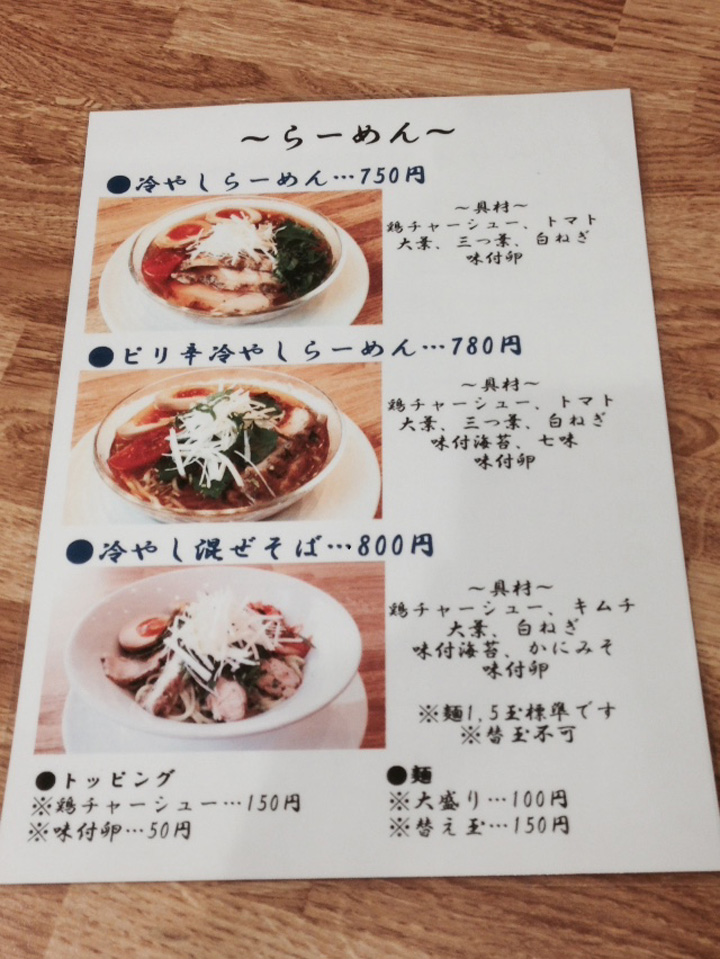 ～らーめん～
●冷やしらーめん…750円
～具材～
鶏チャーシュー、トマト
大葉、三つ葉、白ねぎ
味付卵
●ピリ辛冷やしらーめん…780円
～具材～
鶏チャーシュー、トマト
大葉、三つ葉、白ねぎ
味付海苔、七味
味付卵
●冷やし混ぜそば…800円
～具材～
鶏チャーシュー、キムチ
大葉、白ねぎ
味付海苔、かにみそ
味付卵
※麺1,5玉標準です
※替玉不可
●トッピング
※鶏チャーシュー…150円
※味付卵…50円
●麺
※大盛り…100円
※替え玉…150円